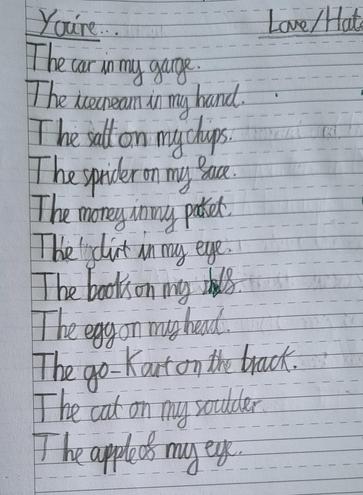 You're... Love/Hat
The car in my garge.
The icecream in my hand.
The salt on my chips.
The sprider on my face.
The money in my poket.
The dirt in my eye.
The books on my
The egg on my head.
The go-Kart on the track.
The cat on my soulder
The apple of my eye.